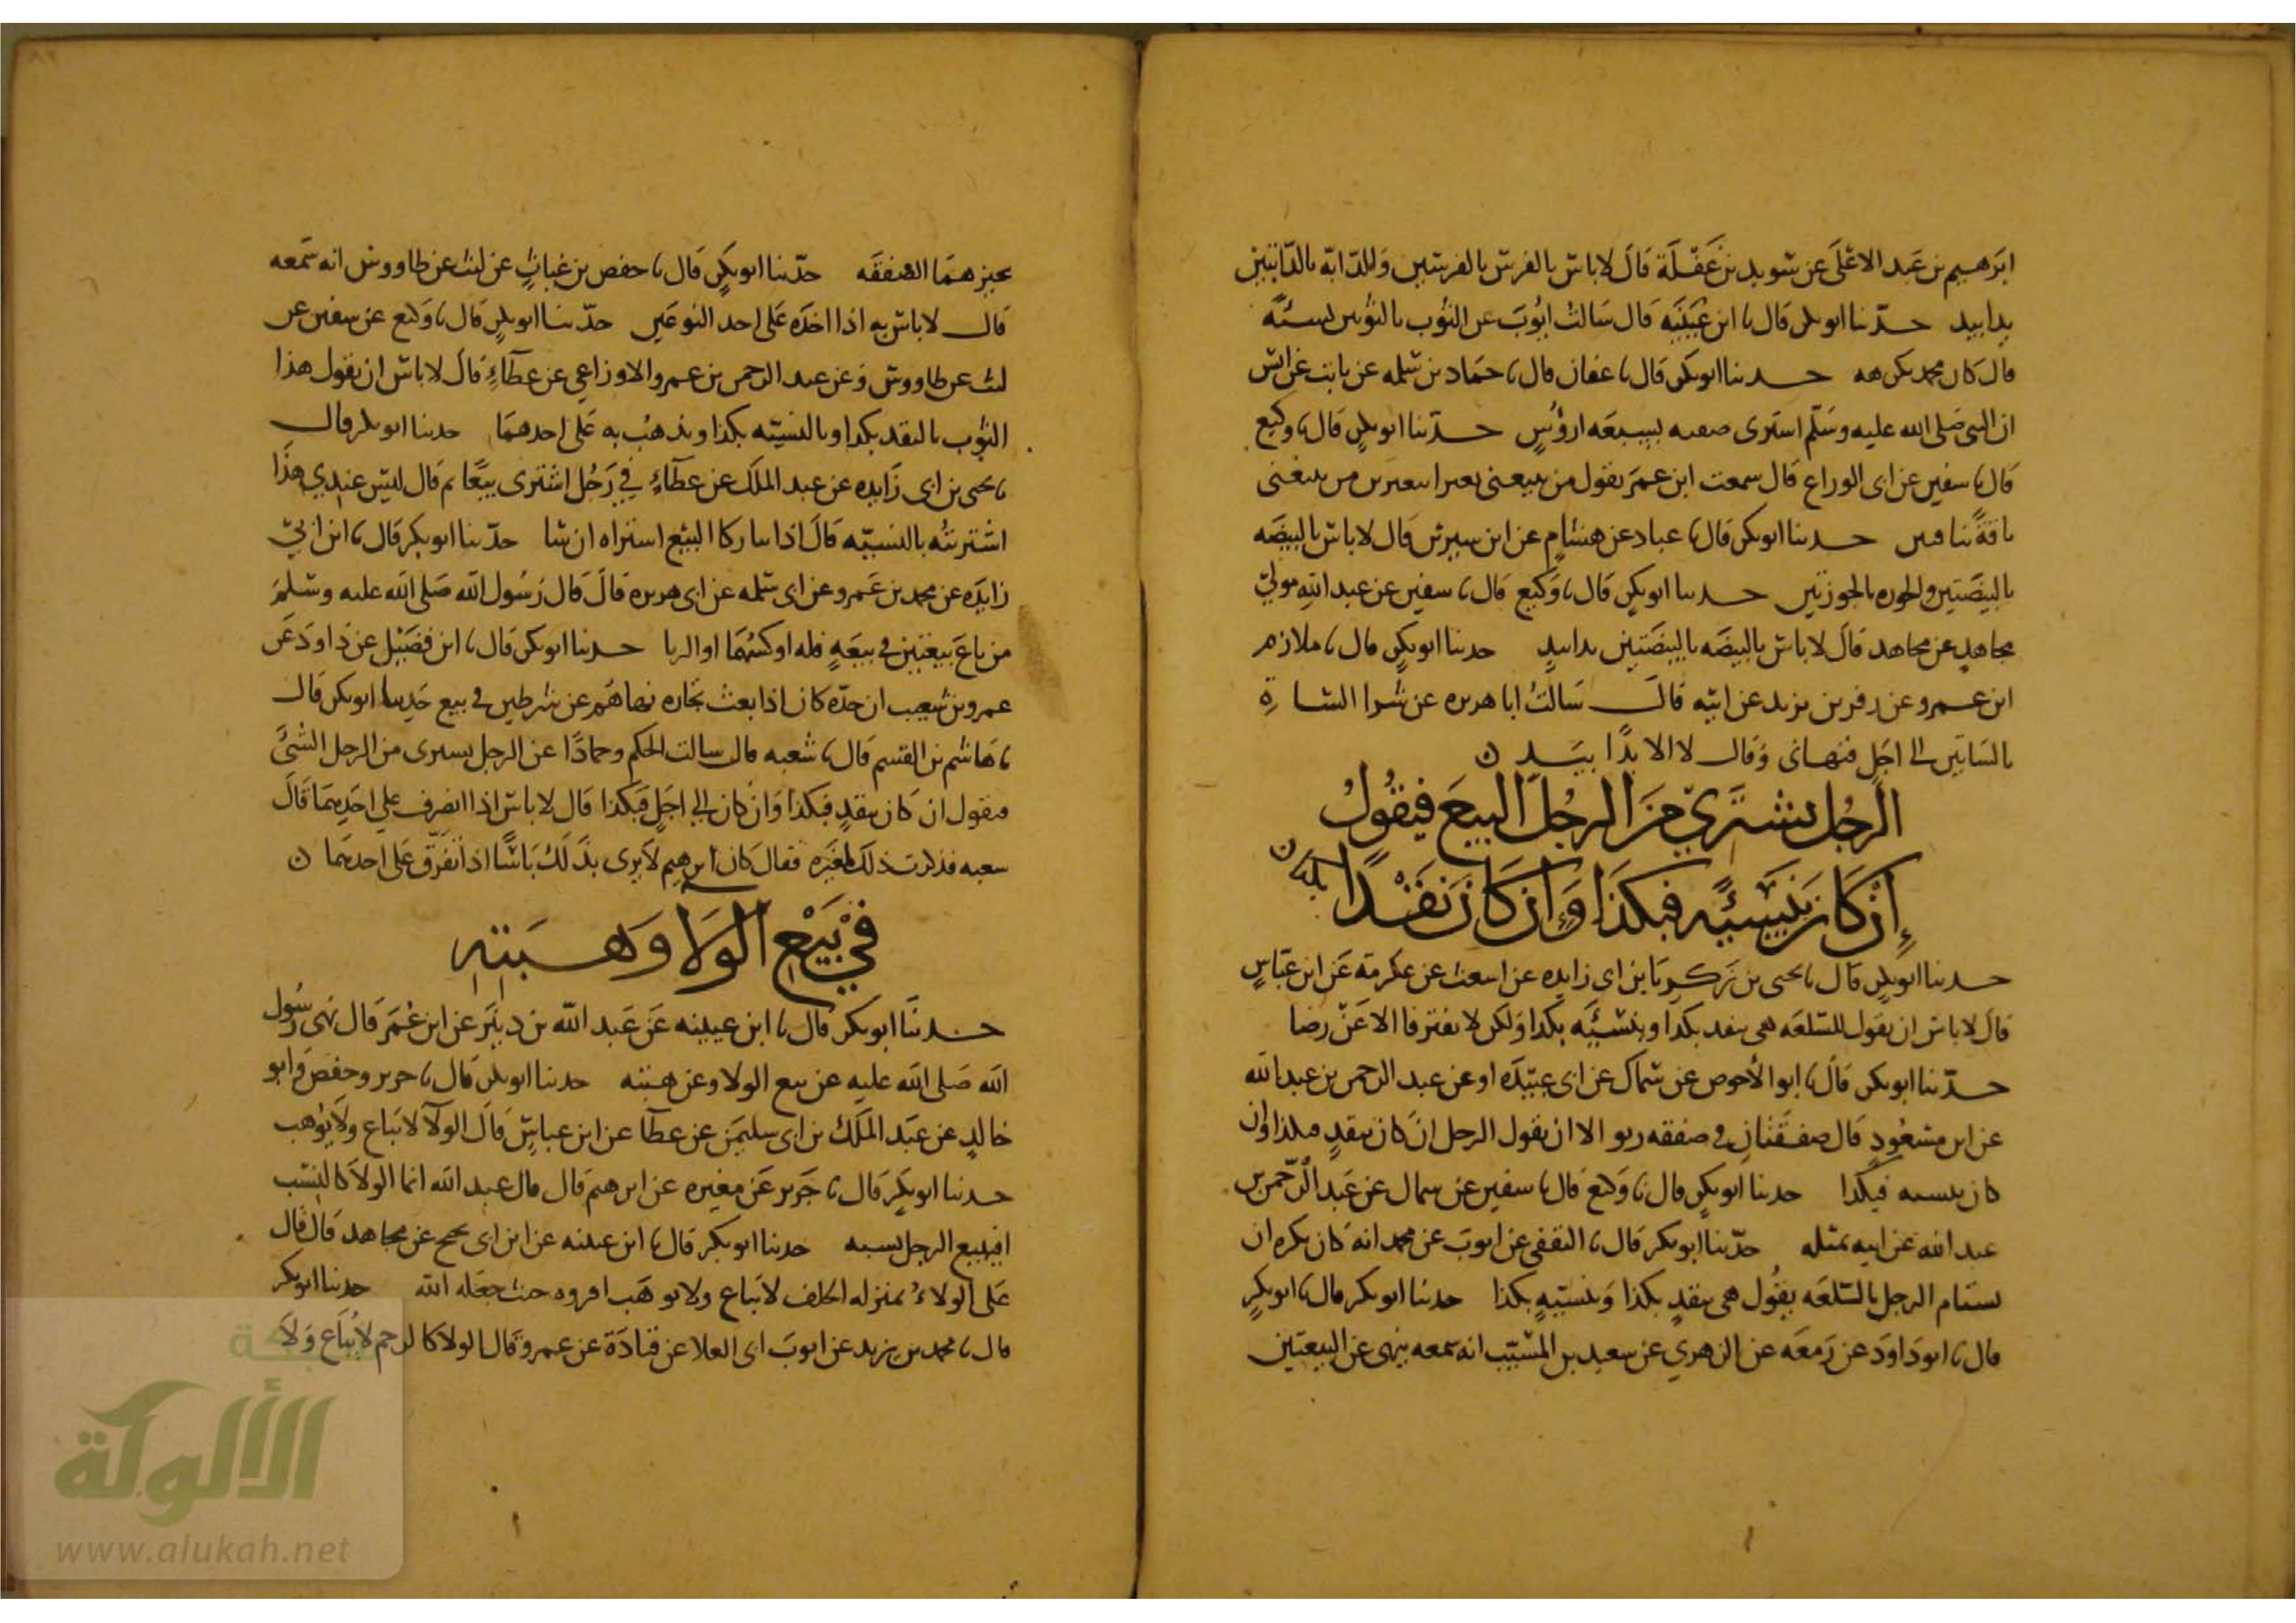 ابرهيم بن عبد الاعلى عن سويد بن غفلة قال لا باس بالفرس بالفرسين وللدابه بالدابتين
يدا بيد حدثنا ابو بكر قال نا ابن عيينه قال سالت ايوب عن الثوب بالثوبين نسئه
قال كان محمد يكرهه حدثنا ابو بكر قال نا عفان قال نا حماد بن سلمه عن ثابت عن انس
ان النبي صلى الله عليه وسلم اشترى صفيه بسبعه ارؤس حدثنا ابو بكر قال نا وكيع
قال نا سفين عن ابى الوراع قال سمعت ابن عمر يقول من يبيعنى بعيرا ببعيرين من يبيعنى
ناقة بناقتين حدثنا ابو بكر قال نا عباد عن هشام عن ابن سيرين قال لا باس بالبيضه
بالبيضتين والجوزه بالجوزتين حدثنا ابو بكر قال نا وكيع قال نا سفين عن عبد الله مولى
مجاهد عن مجاهد قال لا باس بالبيضه بالبيضتين يدا بيد حدثنا ابو بكر قال نا ملازم
ابن عمرو عن زفر بن يزيد عن ابيه قال سالت ابا هريره عن شرا الشاة
بالشاتين الى اجل فنهانى وقال لا الا يدا بيد ن
الرجل يشترى من الرجل البيع فيقول
إن كان بنسيئه فبكذا وإن كان نقدا بكذا ن
حدثنا ابو بكر قال نا يحيى بن زكريا بن ابى زايده عن اشعث عن عكرمة عن ابن عباس
قال لا باس ان يقول للسلعه هى بنقد بكذا وبنسئيه بكذا ولكن لا يفترقا الا عن رضا
حدثنا ابو بكر قال نا ابو الاحوص عن سماك عن ابى عبيده او عن عبد الرحمن بن عبد الله
عن ابن مسعود قال صفقتان فى صفقه ربو الا ان يقول الرجل ان كان بنقد فبكذا وان
كان بنسيه فبكذا حدثنا ابو بكر قال نا وكيع قال نا سفين عن سماك عن عبد الرحمن بن
عبد الله عن ابيه بمثله حدثنا ابو بكر قال نا الثقفى عن ايوب عن محمد انه كان يكره ان
يستام الرجل بالسلعه يقول هى بنقد بكذا وبنسيه بكذا حدثنا ابو بكر قال نا ابو بكر
قال نا ابو داود عن زمعه عن الزهري عن سعيد بن المسيب انه سمعه ينهى عن البيعتين
يجيزهما الصفقه حدثنا ابو بكر قال نا حفص بن غياث عن ليث عن طاووس انه سمعه
قال لا باس به اذا اخذه على احد النوعين حدثنا ابو بكر قال نا وكيع عن سفين عن
ليث عن طاووس وعن عبد الرحمن بن عمرو الاوزاعي عن عطاء قال لا باس ان يقول هذا
الثوب بالنقد بكذا وبالنسيه بكذا ويذهب به على احدهما حدثنا ابو بكر قال
نا يحيى بن ابى زايده عن عبد الملك عن عطاء في رجل اشترى بيعا ثم قال ليس عندي هذا
اشتريته بالنسيه قال اذا تتاركا البيع اشتراه ان شا حدثنا ابو بكر قال نا ابن ابي
زايده عن محمد بن عمرو عن ابى سلمه عن ابى هريره قال قال رسول الله صلى الله عليه وسلم
من باع بيعتين فى بيعه فله اوكسهما او الربا حدثنا ابو بكر قال نا ابن فضيل عن داود عن
عمرو بن شعيب ان جده كان اذا بعث تجاره نهاهم عن شرطين فى بيع حدثنا ابو بكر قال
نا هاشم بن القسم قال نا شعبه قال سالت الحكم وحمادا عن الرجل يشترى من الرجل الشئ
فيقول ان كان بنقد فبكذا وان كان الي اجل فبكذا قال لا باس اذا انصرف على احديهما قال
شعبه فذكرت ذلك لمغيره فقال كان ابرهيم لا يرى بذلك باسا اذا تفرق على احدهما ن
في بيع الولا وهبته
حدثنا ابو بكر قال نا ابن عيينه عن عبد الله بن دينر عن ابن عمر قال نهى رسول
الله صلى الله عليه عن بيع الولا وعن هبته حدثنا ابو بكر قال نا جرير وحفص وابو
خالد عن عبد الملك بن ابى سليمن عن عطا عن ابن عباس قال الولا لا يباع ولا يوهب
حدثنا ابو بكر قال نا جرير عن مغيره عن ابرهيم قال قال عبد الله انما الولا كالنسب
افيبيع الرجل نسبه حدثنا ابو بكر قال نا ابن عيينه عن ابن ابى نجيح عن مجاهد قال قال
على الولاء بمنزله الحلف لا يباع ولا يوهب اقروه حيث جعله الله حدثنا ابو بكر
قال نا محمد بن يزيد عن ايوب ابى العلا عن قتادة عن عمر قال الولا كالرحم لا يباع ولا
شبكة
الألوكة
www.alukah.net